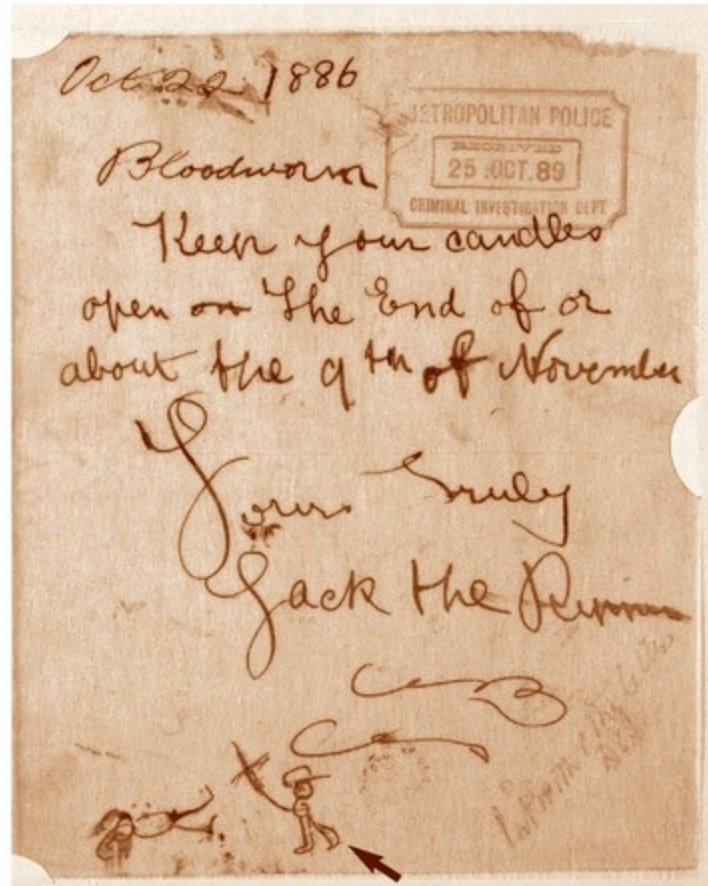 Oct 22 1886
METROPOLITAN POLICE
RECEIVED
25 .OCT.89
CRIMINAL INVESTIGATION DEPT
Bloodworm
Keep your candles
open on the End of or
about the 9th of November
Yours Truly
Jack the Ripper